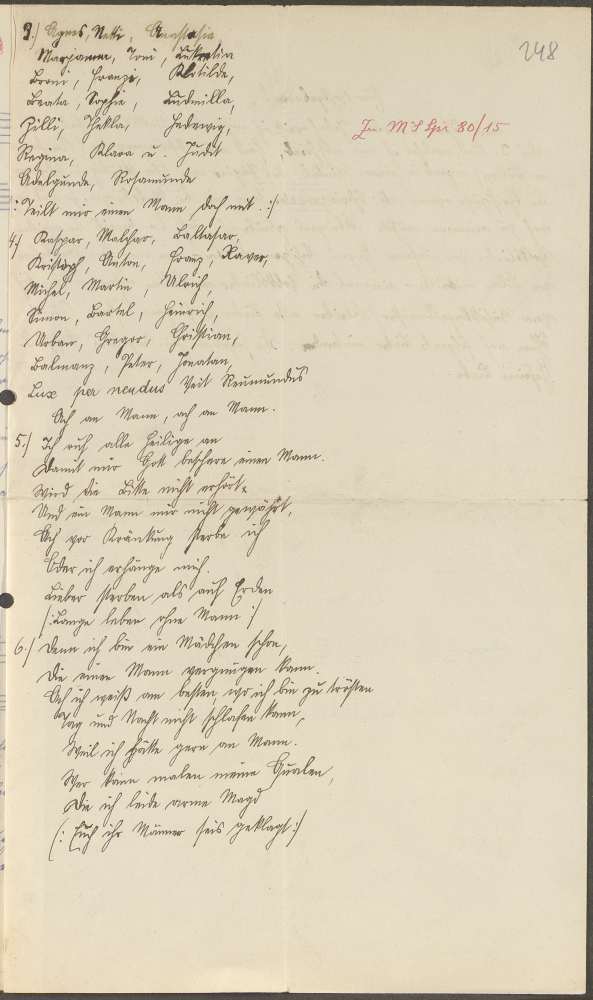 248
3.) Agnes, Netti, Anastasia
Marianna, Toni, Lukretia
Broni, Franzi, Klotilde,
Beata, Sophie, Ludmilla,
Zilli, Thekla, Hedwig,
Regina, Klara u. Judit
Adelgunde, Rosamunde
/: Teilt mir einen Mann doch mit. :/
Zu MS Spr 80/15
4.) Kaspar, Malchar, Baltasar,
Kristoph, Anton, Franz, Xaver,
Michel, Martin, Ulrich,
Simon, Bartel, Heinrich,
Urban, Gregor, Christian,
Balmanz, Peter, Jonatan,
Lux per nendus Veit Reumundus
Ach an Mann, ach an Mann.
5.) Ich ruf alle Heilige an
Damit mir Gott beschere einen Mann.
Wird die Bitte nicht erhört,
Und ein Mann mir nicht gewährt,
Ach vor Kränkung sterbe ich
Oder ich erhänge mich.
Lieber sterben als auf Erden
/: Lange leben ohne Mann :/
6.) Denn ich bin ein Mädchen schon,
Die einen Mann vergnügen kann.
Ach ich weiß am besten, wo ich bin zu trösten
Tag und Nacht nicht schlafen kann,
Weil ich hätte gern an Mann.
Wer kann malen meine Qualen,
Die ich leide arme Magd
/: Euch ihr Männer seis geklagt :/